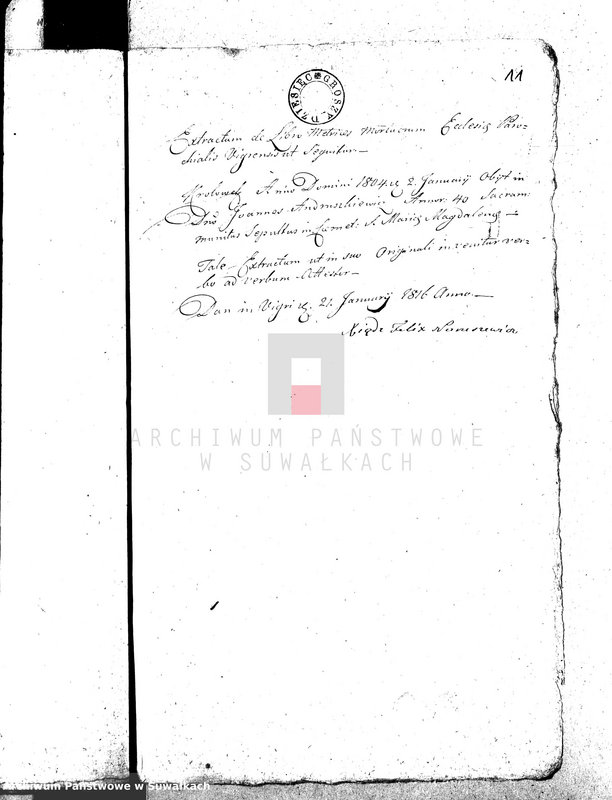 11
DZIESIĘC GROSZY
Extractum de Libro Metrices Mortuorum Ecclesiæ Paro-
chialis Vigrensis ut Sequitur —
Anno Domini 1804 d. 2. Januarÿ Obÿt in
Dnō Joannes Andruszkiewicz Annor: 40 Sacram:
munitus Sepultus in Cæmet: S. Mariæ Magdalenæ —
Tale Extractum ut in suo Originali invenitur ver-
bo ad verbum Attestor —
Dan in Vigri d. 21. Januarÿ 1816 Anno —
Xiądz Felix
ARCHIWUM PAŃSTWOWE
W SUWAŁKACH
Archiwum Państwowe w Suwałkach